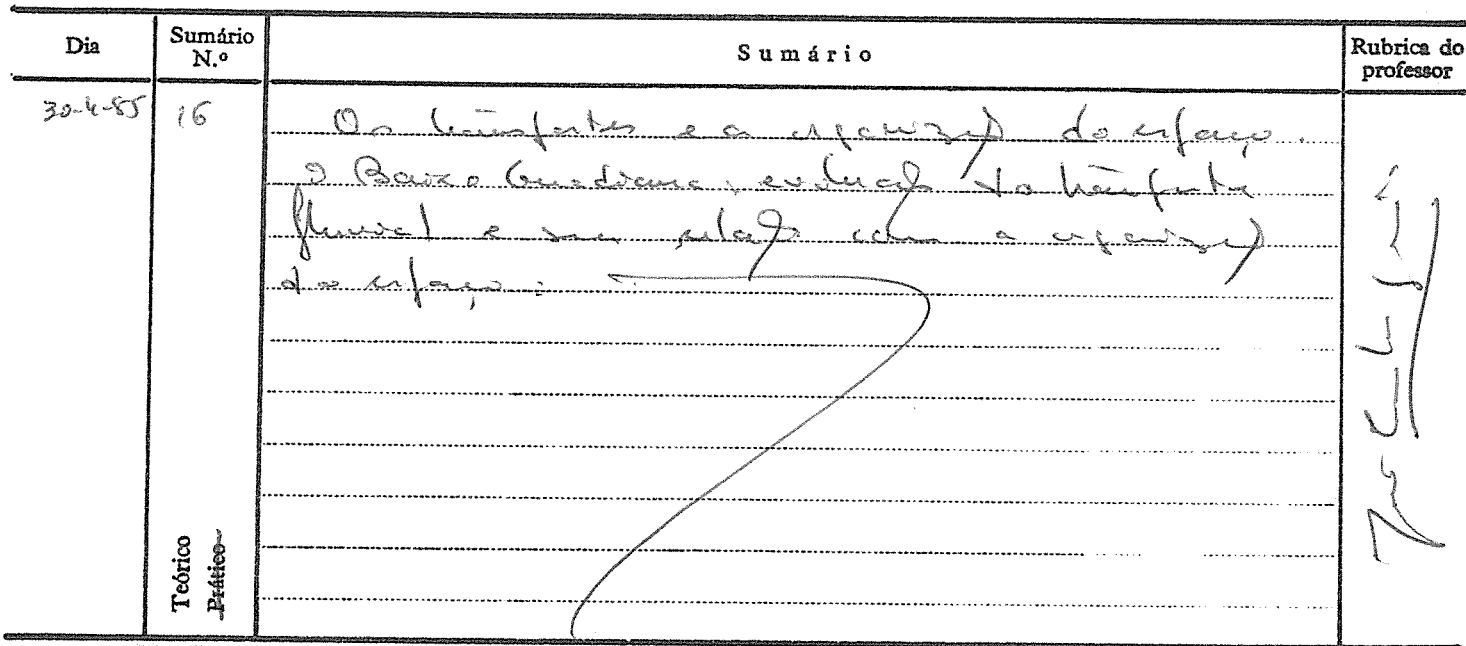 Dia Sumário N.º Sumário Rubrica do professor
30-4-85 16 Os transportes e a organização do espaço.
O Baixo Guadiana: evolução do transporte
fluvial e sua relação com a organização
do espaço.
Teórico
Prático